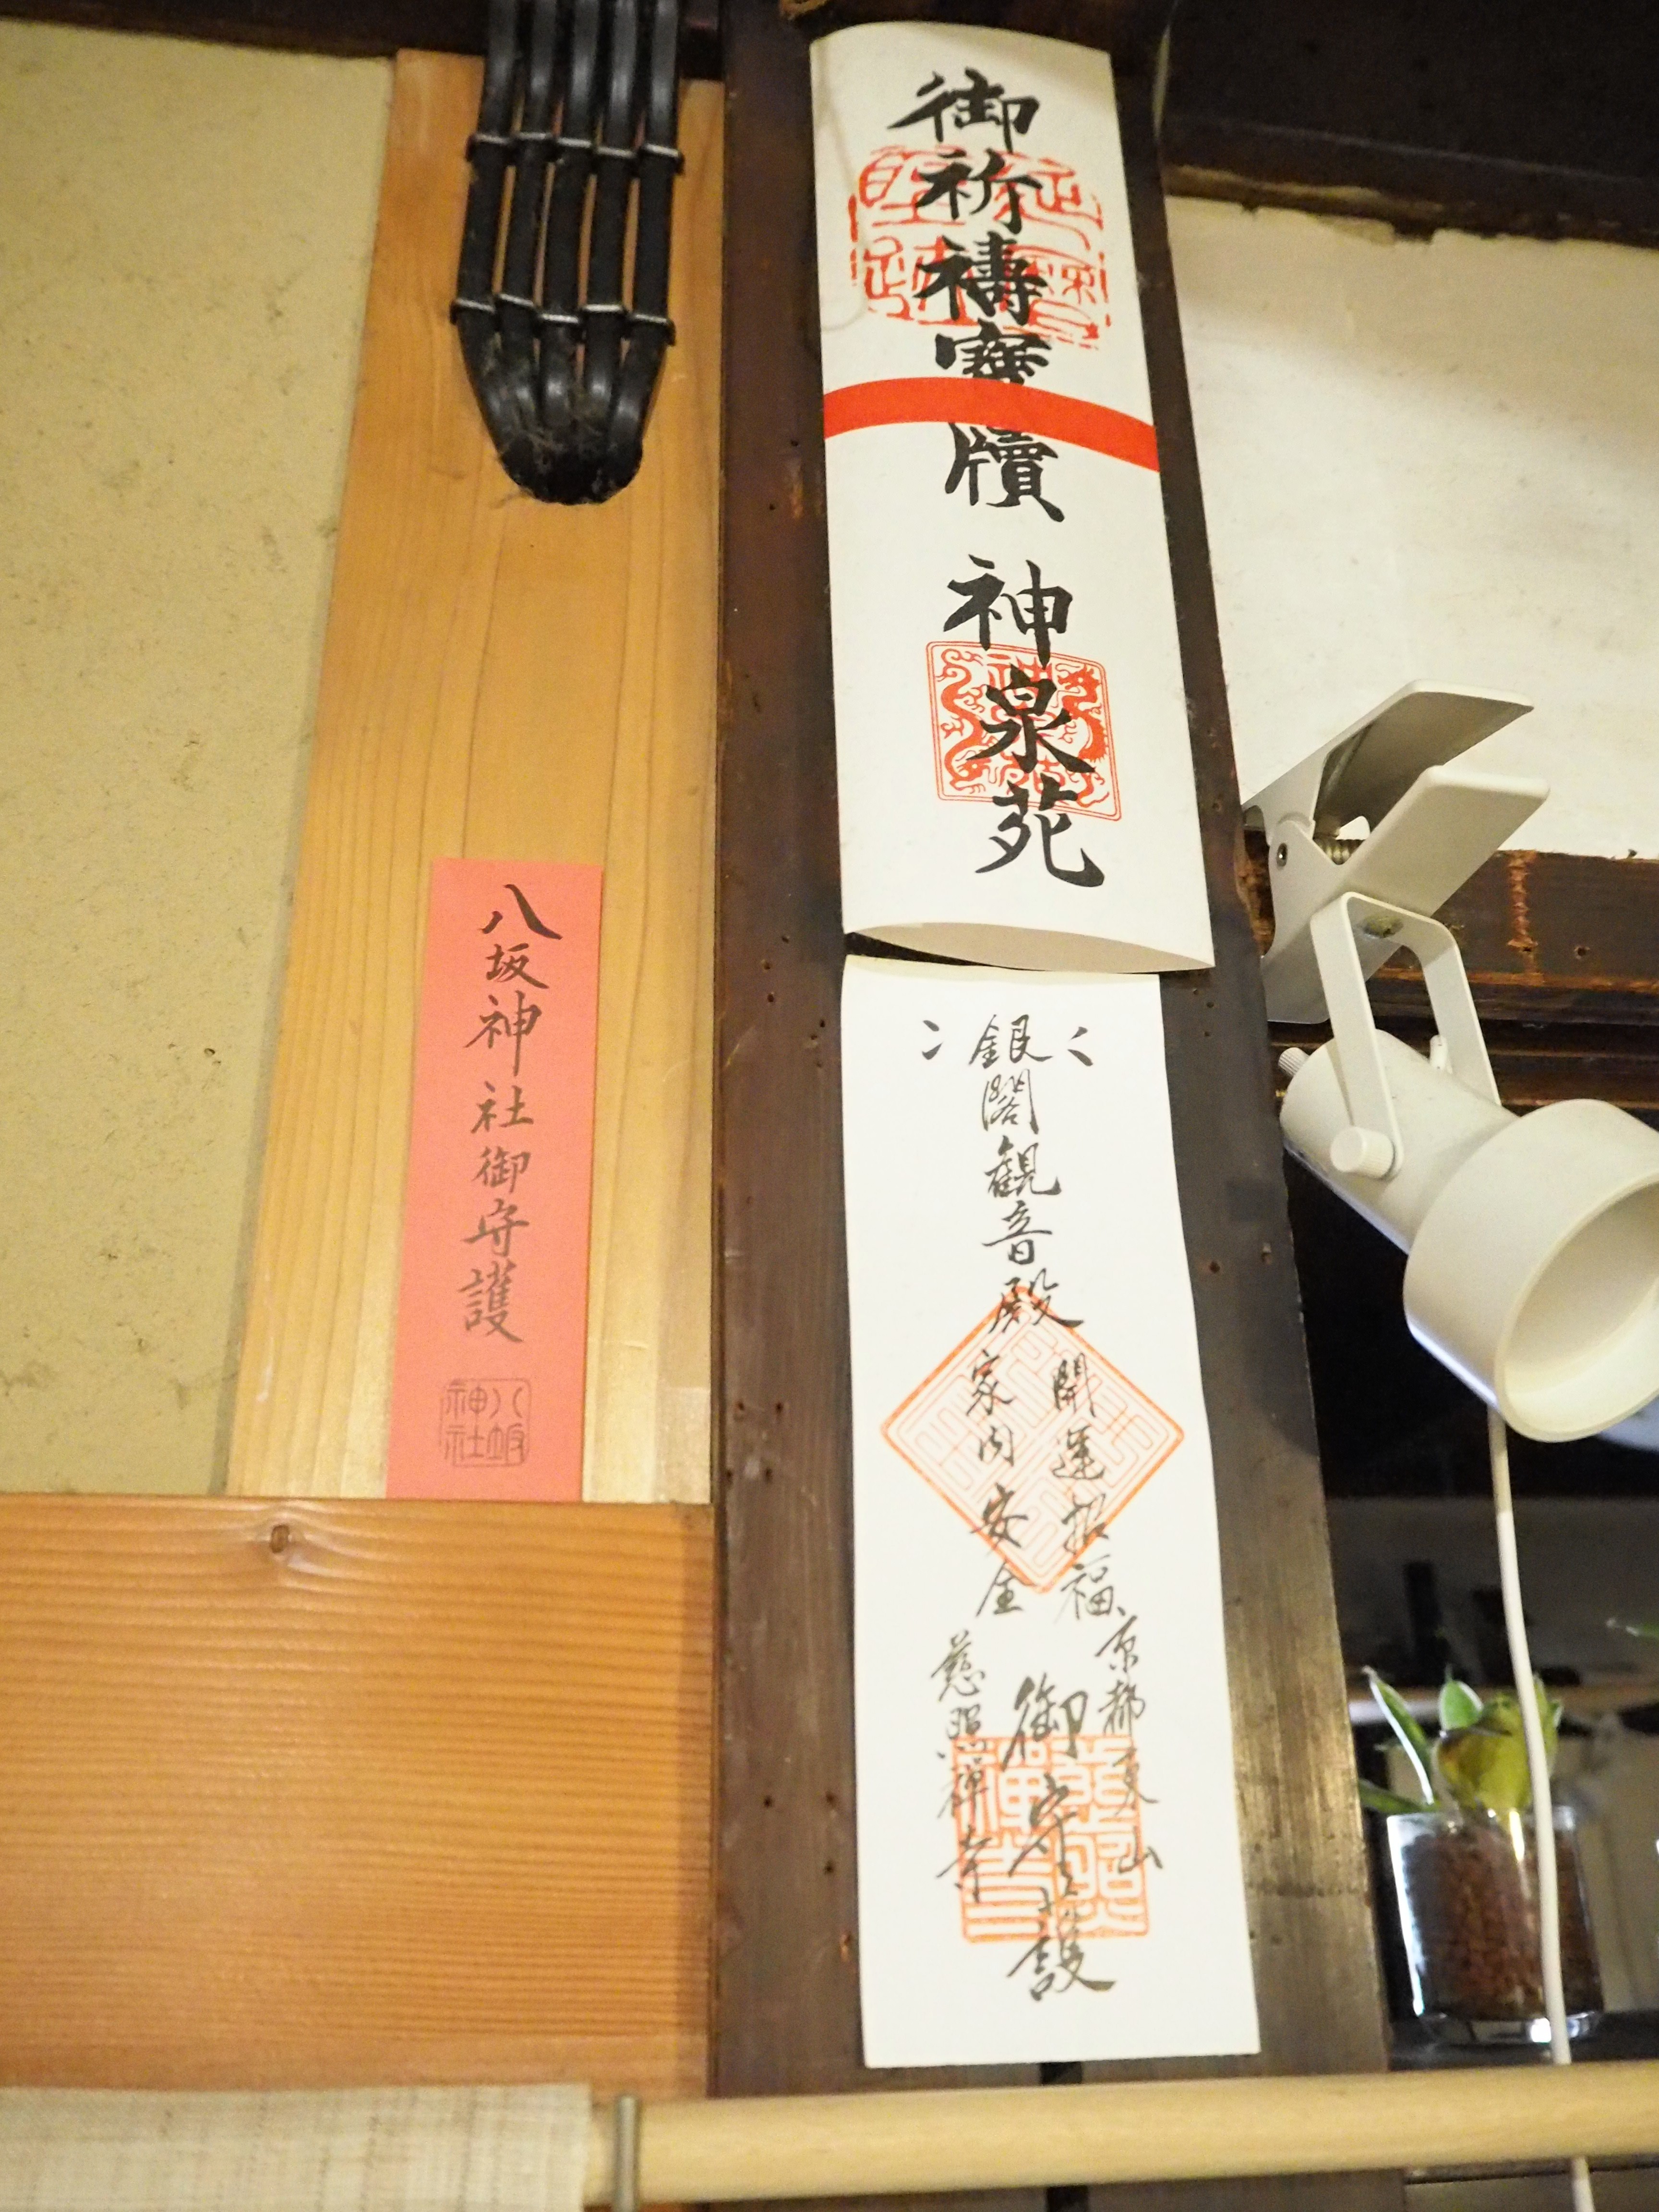 御祈禱寶牘 神泉苑
銀閣観音殿
開運招福
家内安全
京都東山
慈照禅寺
御守護
八坂神社御守護
八坂
神社